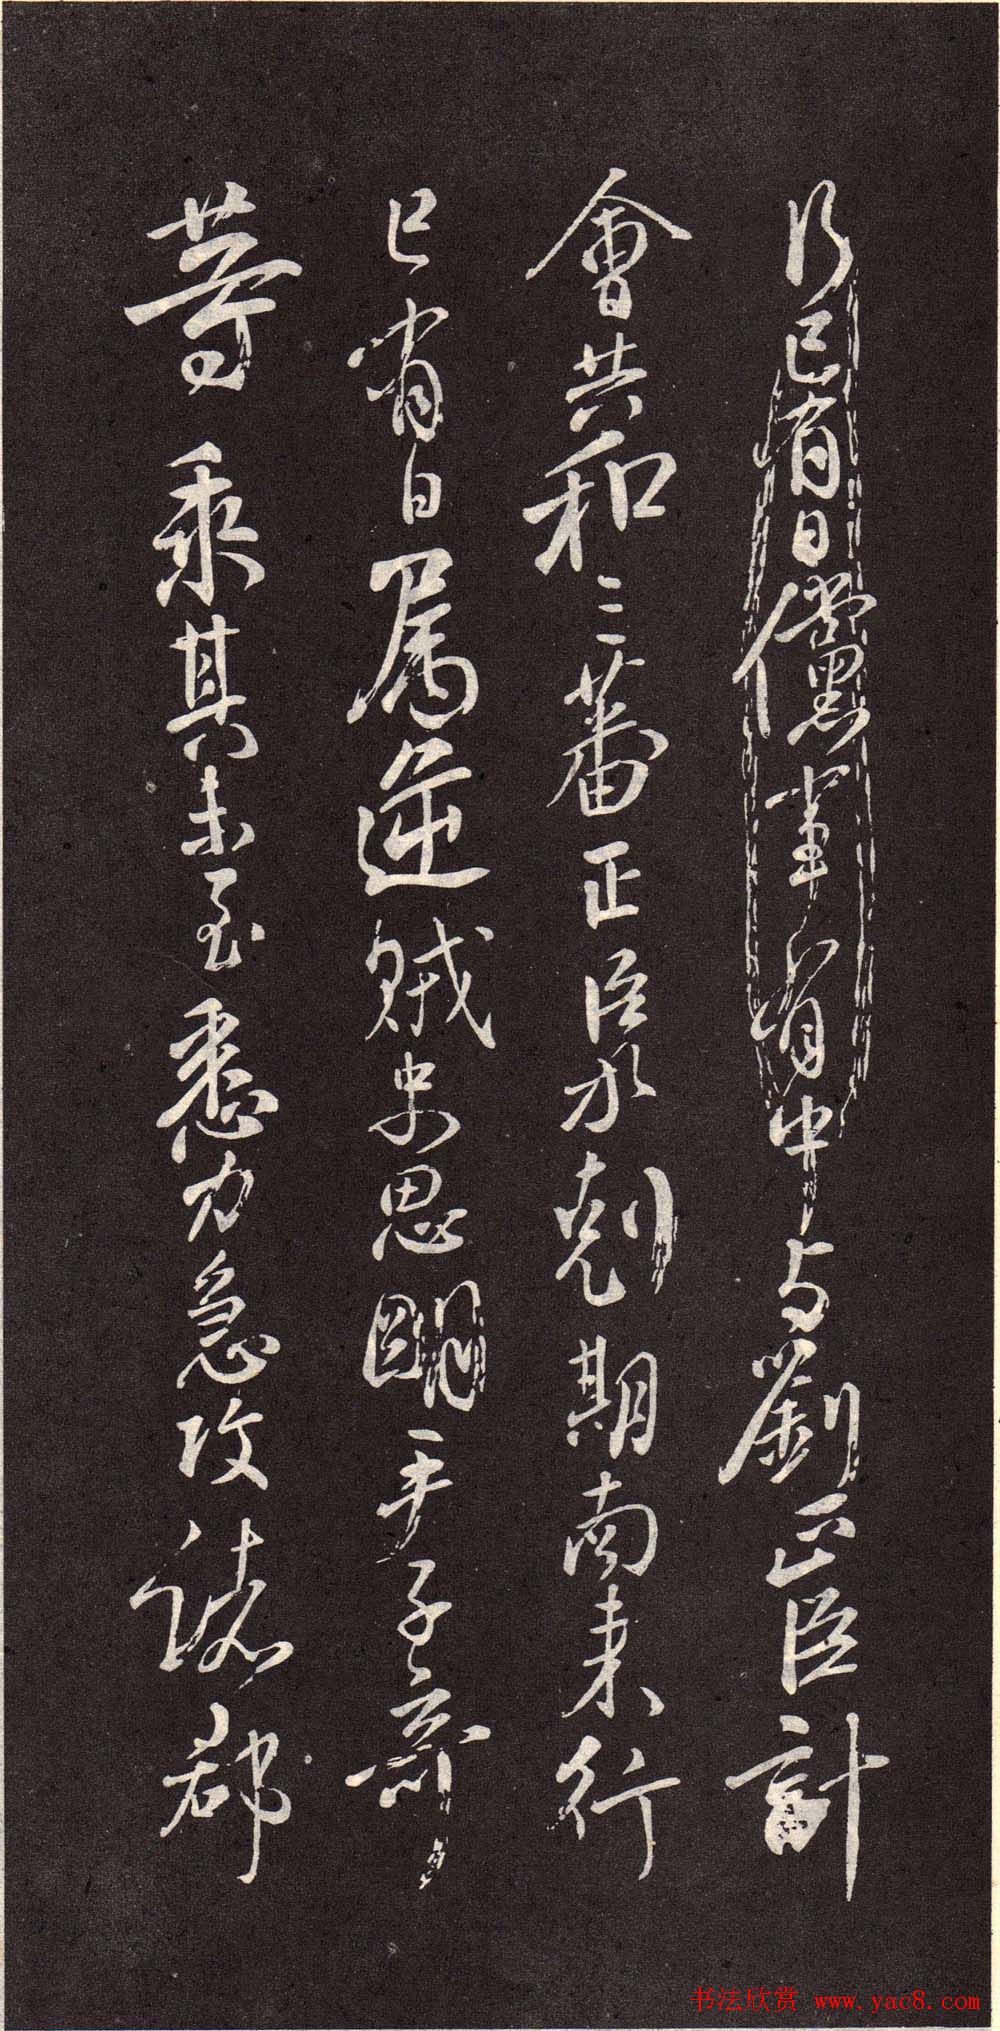 行已有日儻事有中与劉正臣計
會共和二蕃正臣亦剋期南來行
已有日屬逆賊史思明尹子奇
等乘其未至悉力急攻諸郡
书法欣赏 www.yac8.com